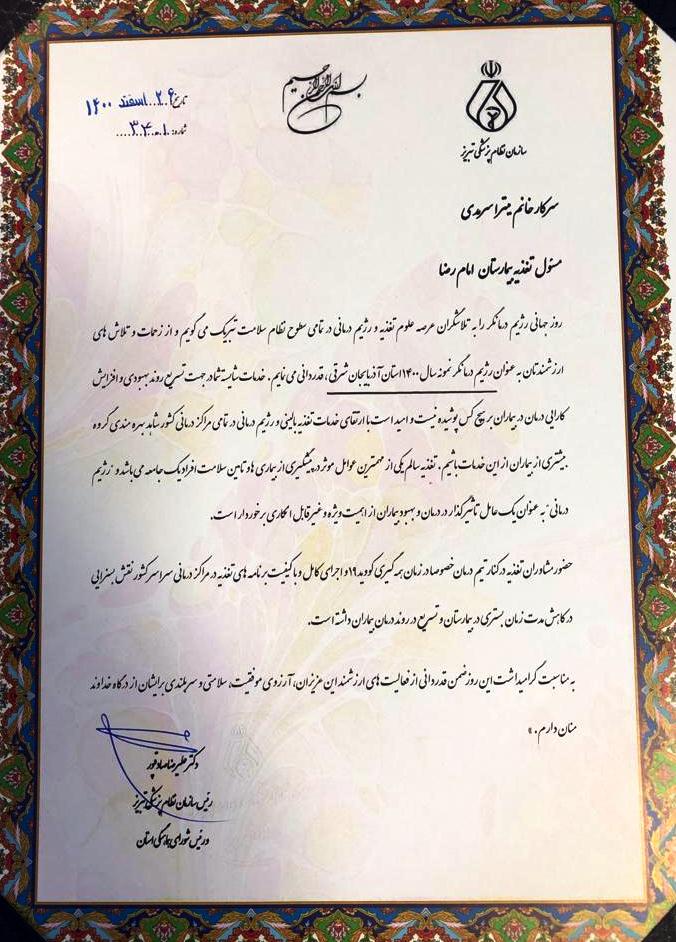 بسم الله الرحمن الرحیم
سازمان نظام پزشکی تبریز
تاریخ: ۲۶ اسفند ۱۴۰۰
شماره: ۳۴۰۱
سرکار خانم میترا سرمدی
مسئول تغذیه بیمارستان امام رضا
روز جهانی رژیم درمانگر را به تلاشگران عرصه علوم تغذیه و رژیم درمانی در تمامی سطوح نظام سلامت تبریک می گویم و از زحمات و تلاش های
ارزشمندتان به عنوان رژیم درمانگر نمونه سال ۱۴۰۰ استان آذربایجان شرقی، قدردانی می نمایم. خدمات شایسته شما در جهت تسریع روند بهبودی و افزایش
کارایی درمان در بیماران بر هیچ کس پوشیده نیست و امید است با ارتقای خدمات تغذیه بالینی و رژیم درمانی در تمامی مراکز درمانی کشور شاهد بهره مندی گروه
بیشتری از بیماران از این خدمات باشیم. تغذیه سالم یکی از مهمترین عوامل موثر در پیشگیری از بیماری ها و تامین سلامت افراد یک جامعه می باشد و رژیم
درمانی به عنوان یک عامل تاثیرگذار در درمان و بهبود بیماران از اهمیت ویژه و غیر قابل انکاری برخوردار است.
حضور مشاوران تغذیه در کنار تیم درمان خصوصا در زمان همه گیری کووید ۱۹ و اجرای کامل و با کیفیت برنامه های تغذیه در مراکز درمانی سراسر کشور نقش بسزایی
در کاهش مدت زمان بستری در بیمارستان و تسریع در روند درمان بیماران داشته است.
به مناسبت گرامیداشت این روز ضمن قدردانی از فعالیت های ارزشمند این عزیزان، آرزوی موفقیت، سلامتی و سربلندی برایشان از درگاه خداوند
منان دارم. »
دکتر علیرضا صادقپور
رئیس سازمان نظام پزشکی تبریز
و رئیس شورای هماهنگی استان